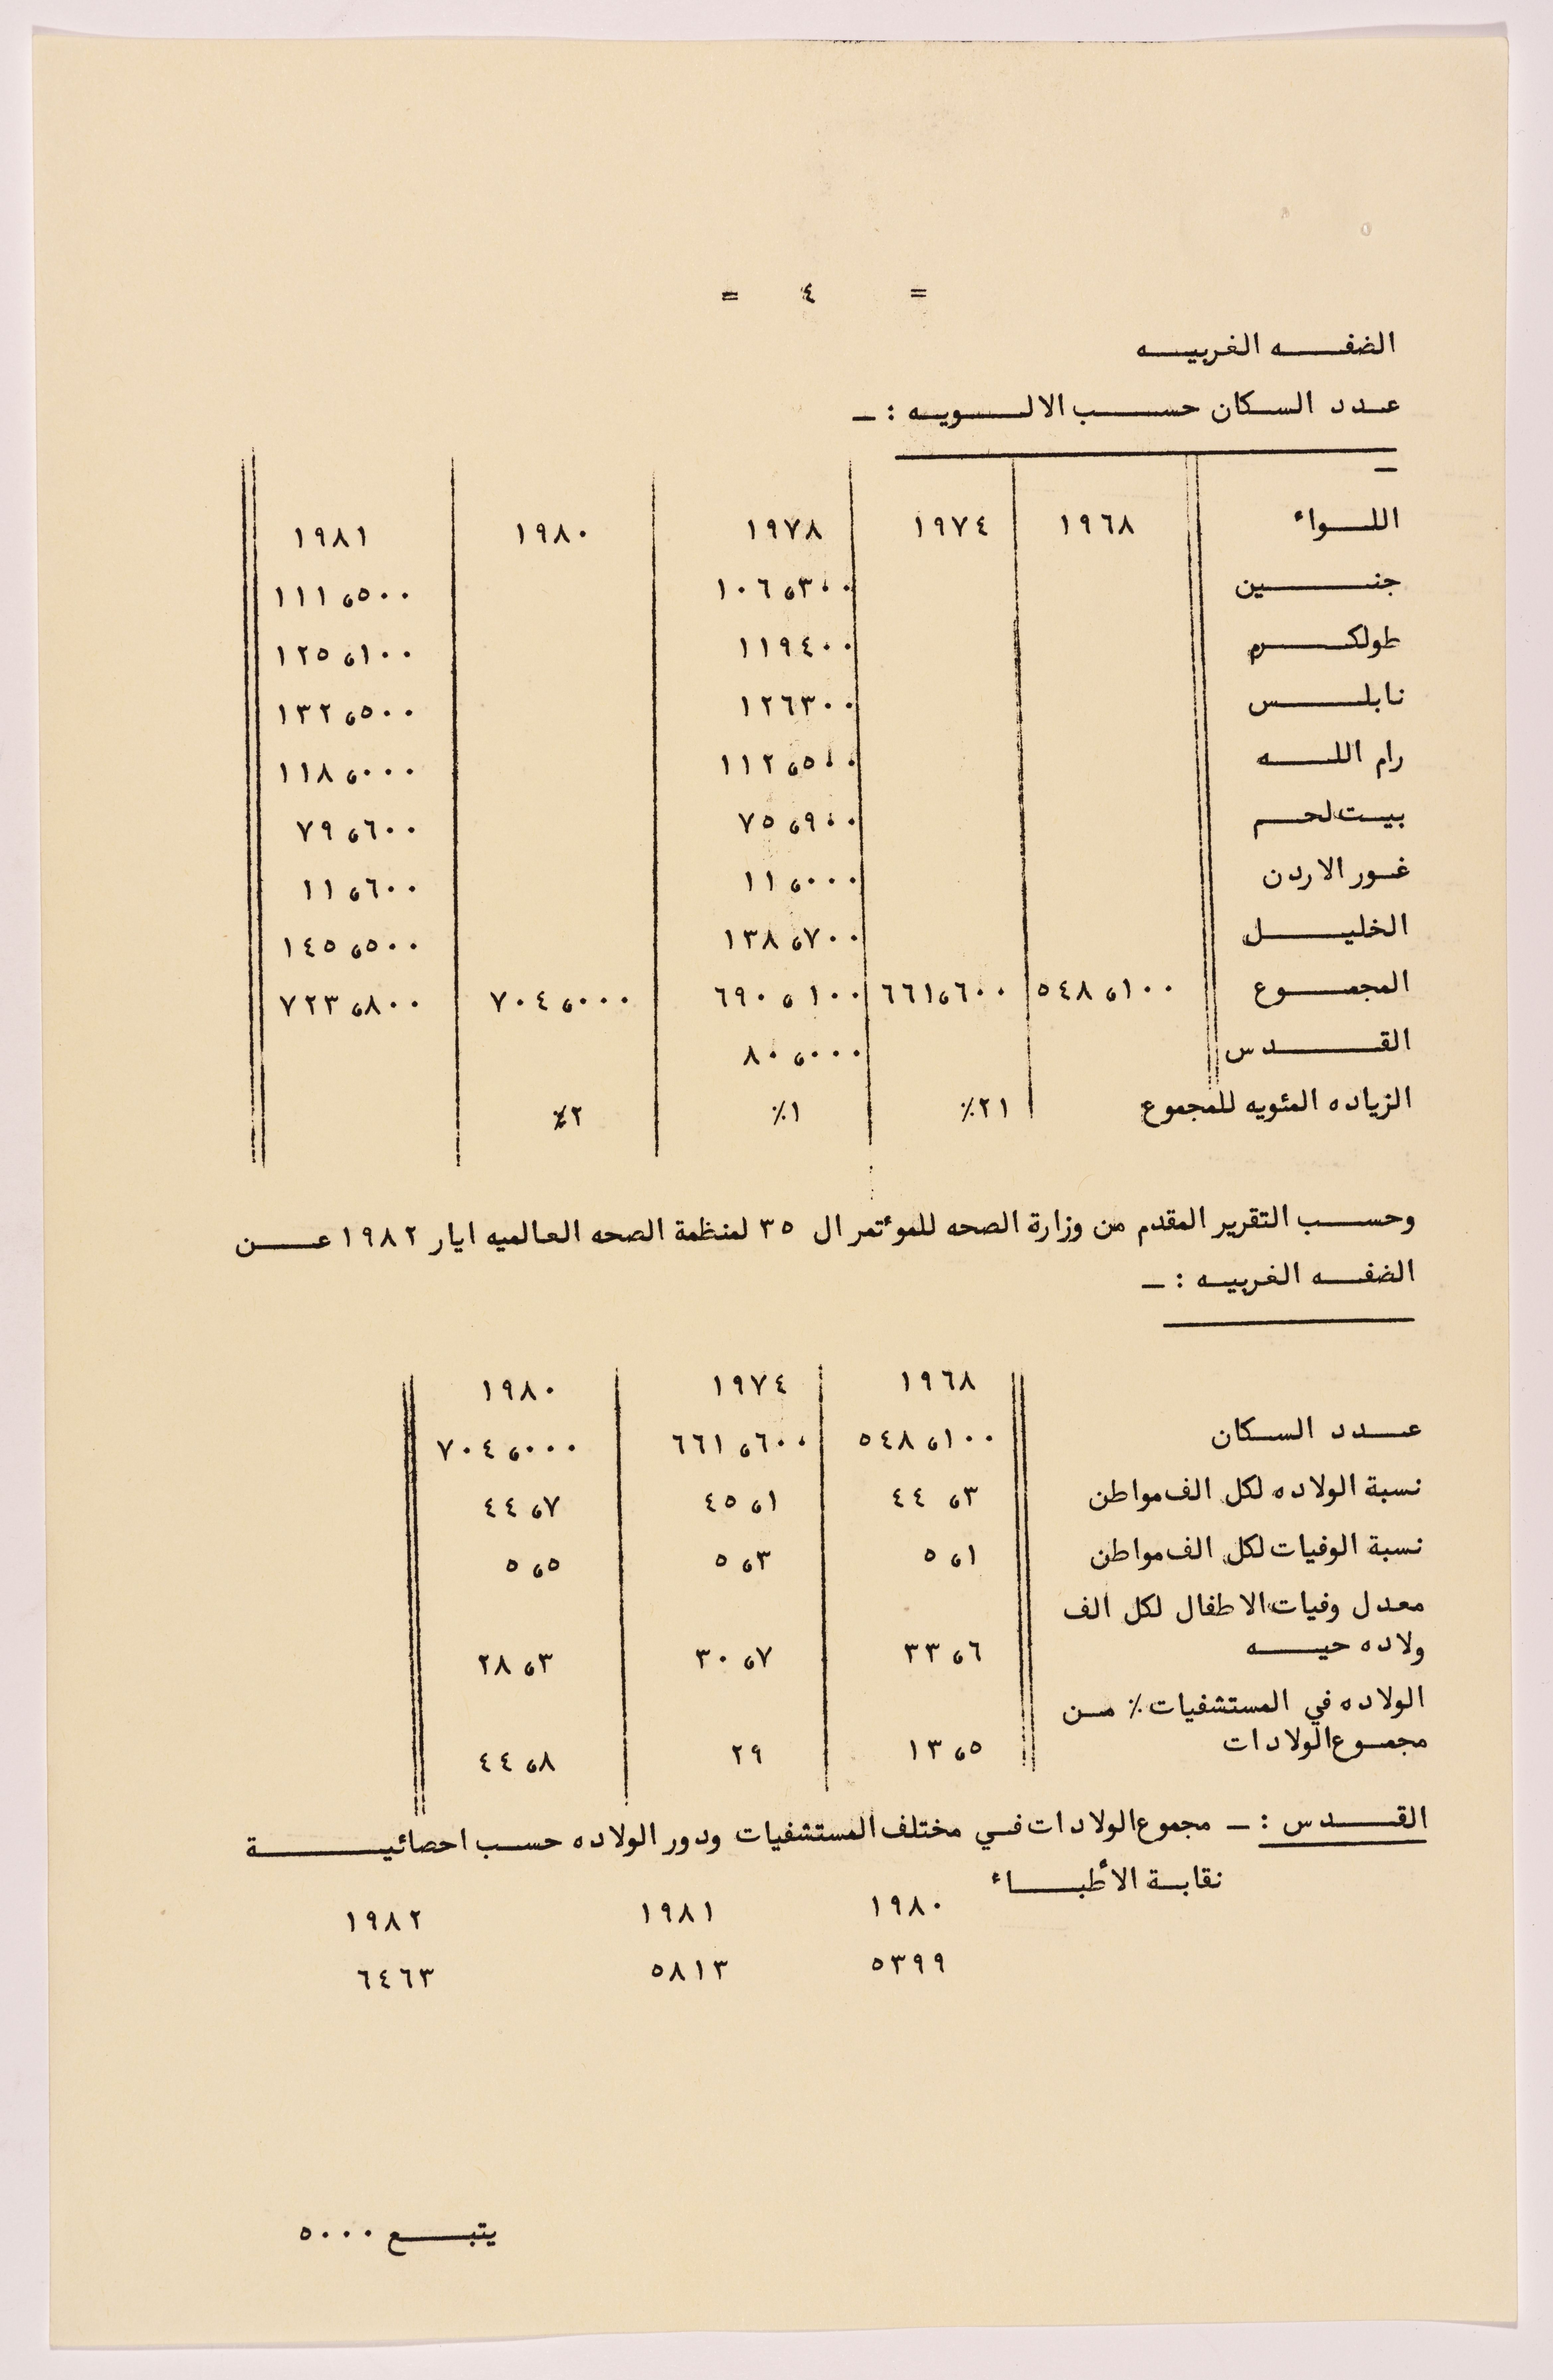 = ٤ =
الضفه الغربيه
عدد السكان حسب الالويه : ـ
اللواء ١٩٦٨ ١٩٧٤ ١٩٧٨ ١٩٨٠ ١٩٨١
جنين ١٠٦،٣٠٠ ١١١،٥٠٠
طولكرم ١١٩٤٠٠ ١٢٥،١٠٠
نابلس ١٢٦٣٠٠ ١٣٢،٥٠٠
رام الله ١١٢،٥٠٠ ١١٨،٠٠٠
بيت لحم ٧٥،٩٠٠ ٧٩،٦٠٠
غور الاردن ١١،٠٠٠ ١١،٦٠٠
الخليل ١٣٨،٧٠٠ ١٤٥،٥٠٠
المجموع ٥٤٨،١٠٠ ٦٦١،٦٠٠ ٦٩٠،١٠٠ ٧٠٤،٠٠٠ ٧٢٣،٨٠٠
القدس ٨٠،٠٠٠
الزياده المئويه للمجموع ٢١٪ ١٪ ٢٪
وحسب التقرير المقدم من وزارة الصحه للموءتمر ال ٣٥ لمنظمة الصحه العالميه ايار ١٩٨٢ عن
الضفه الغربيه : ـ
١٩٦٨ ١٩٧٤ ١٩٨٠
عدد السكان ٥٤٨،١٠٠ ٦٦١،٦٠٠ ٧٠٤،٠٠٠
نسبة الولاده لكل الف مواطن ٤٤،٣ ٤٥،١ ٤٤،٧
نسبة الوفيات لكل الف مواطن ٥،١ ٥،٣ ٥،٥
معدل وفيات الاطفال لكل الف
ولاده حيه ٣٣،٦ ٣٠،٧ ٢٨،٣
الولاده في المستشفيات ٪ من
مجموع الولادات ١٣،٥ ٢٩ ٤٤،٨
القدس : ـ مجموع الولادات في مختلف المستشفيات ودور الولاده حسب احصائية
نقابة الأطباء
١٩٨٠ ١٩٨١ ١٩٨٢
٥٣٩٩ ٥٨١٣ ٦٤٦٣
يتبع ٥٠٠٠